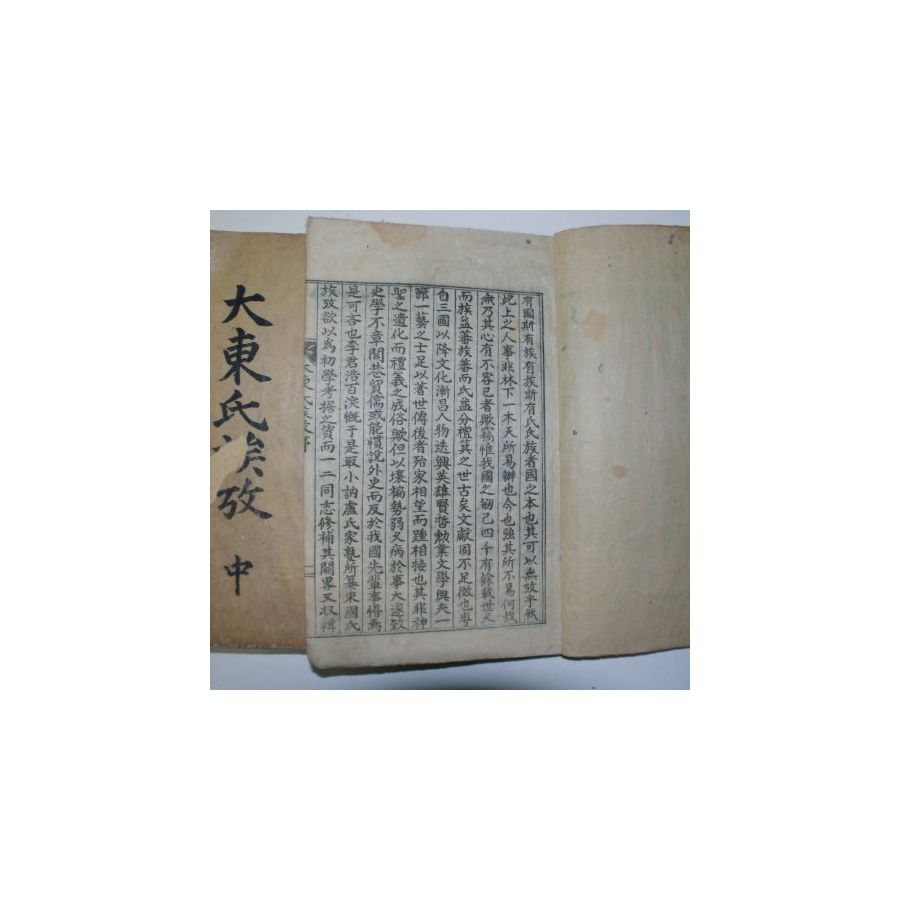 有國斯有族有族斯有氏氏族者國之本也其可以無攷乎然
此上之人事非林下一木天所易辦也今也強其所不易何哉
無乃其心有不容已者歟竊惟我國之刱已四千有餘載世久
而族益蕃族蕃而氏益分檀箕之世古矣文獻固不足徵也粤
自三國以降文化漸昌人物迭興英雄賢哲勳業文學與夫一
節一藝之士足以著世傳後者殆家相望而踵相接也其非神
聖之遺化而禮義之成俗歟但以壤褊勢弱久病於事大遂致
史學不章閭巷貿儒或能慣說外史而反於我國先輩事懵焉
是可吝也李君浩百深慨于是取小訥盧氏家塾所纂東國氏
族攷欲以爲初學考据之資而一二同志修補其闕畧又收緝
大東氏族攷序
大東氏族攷 中